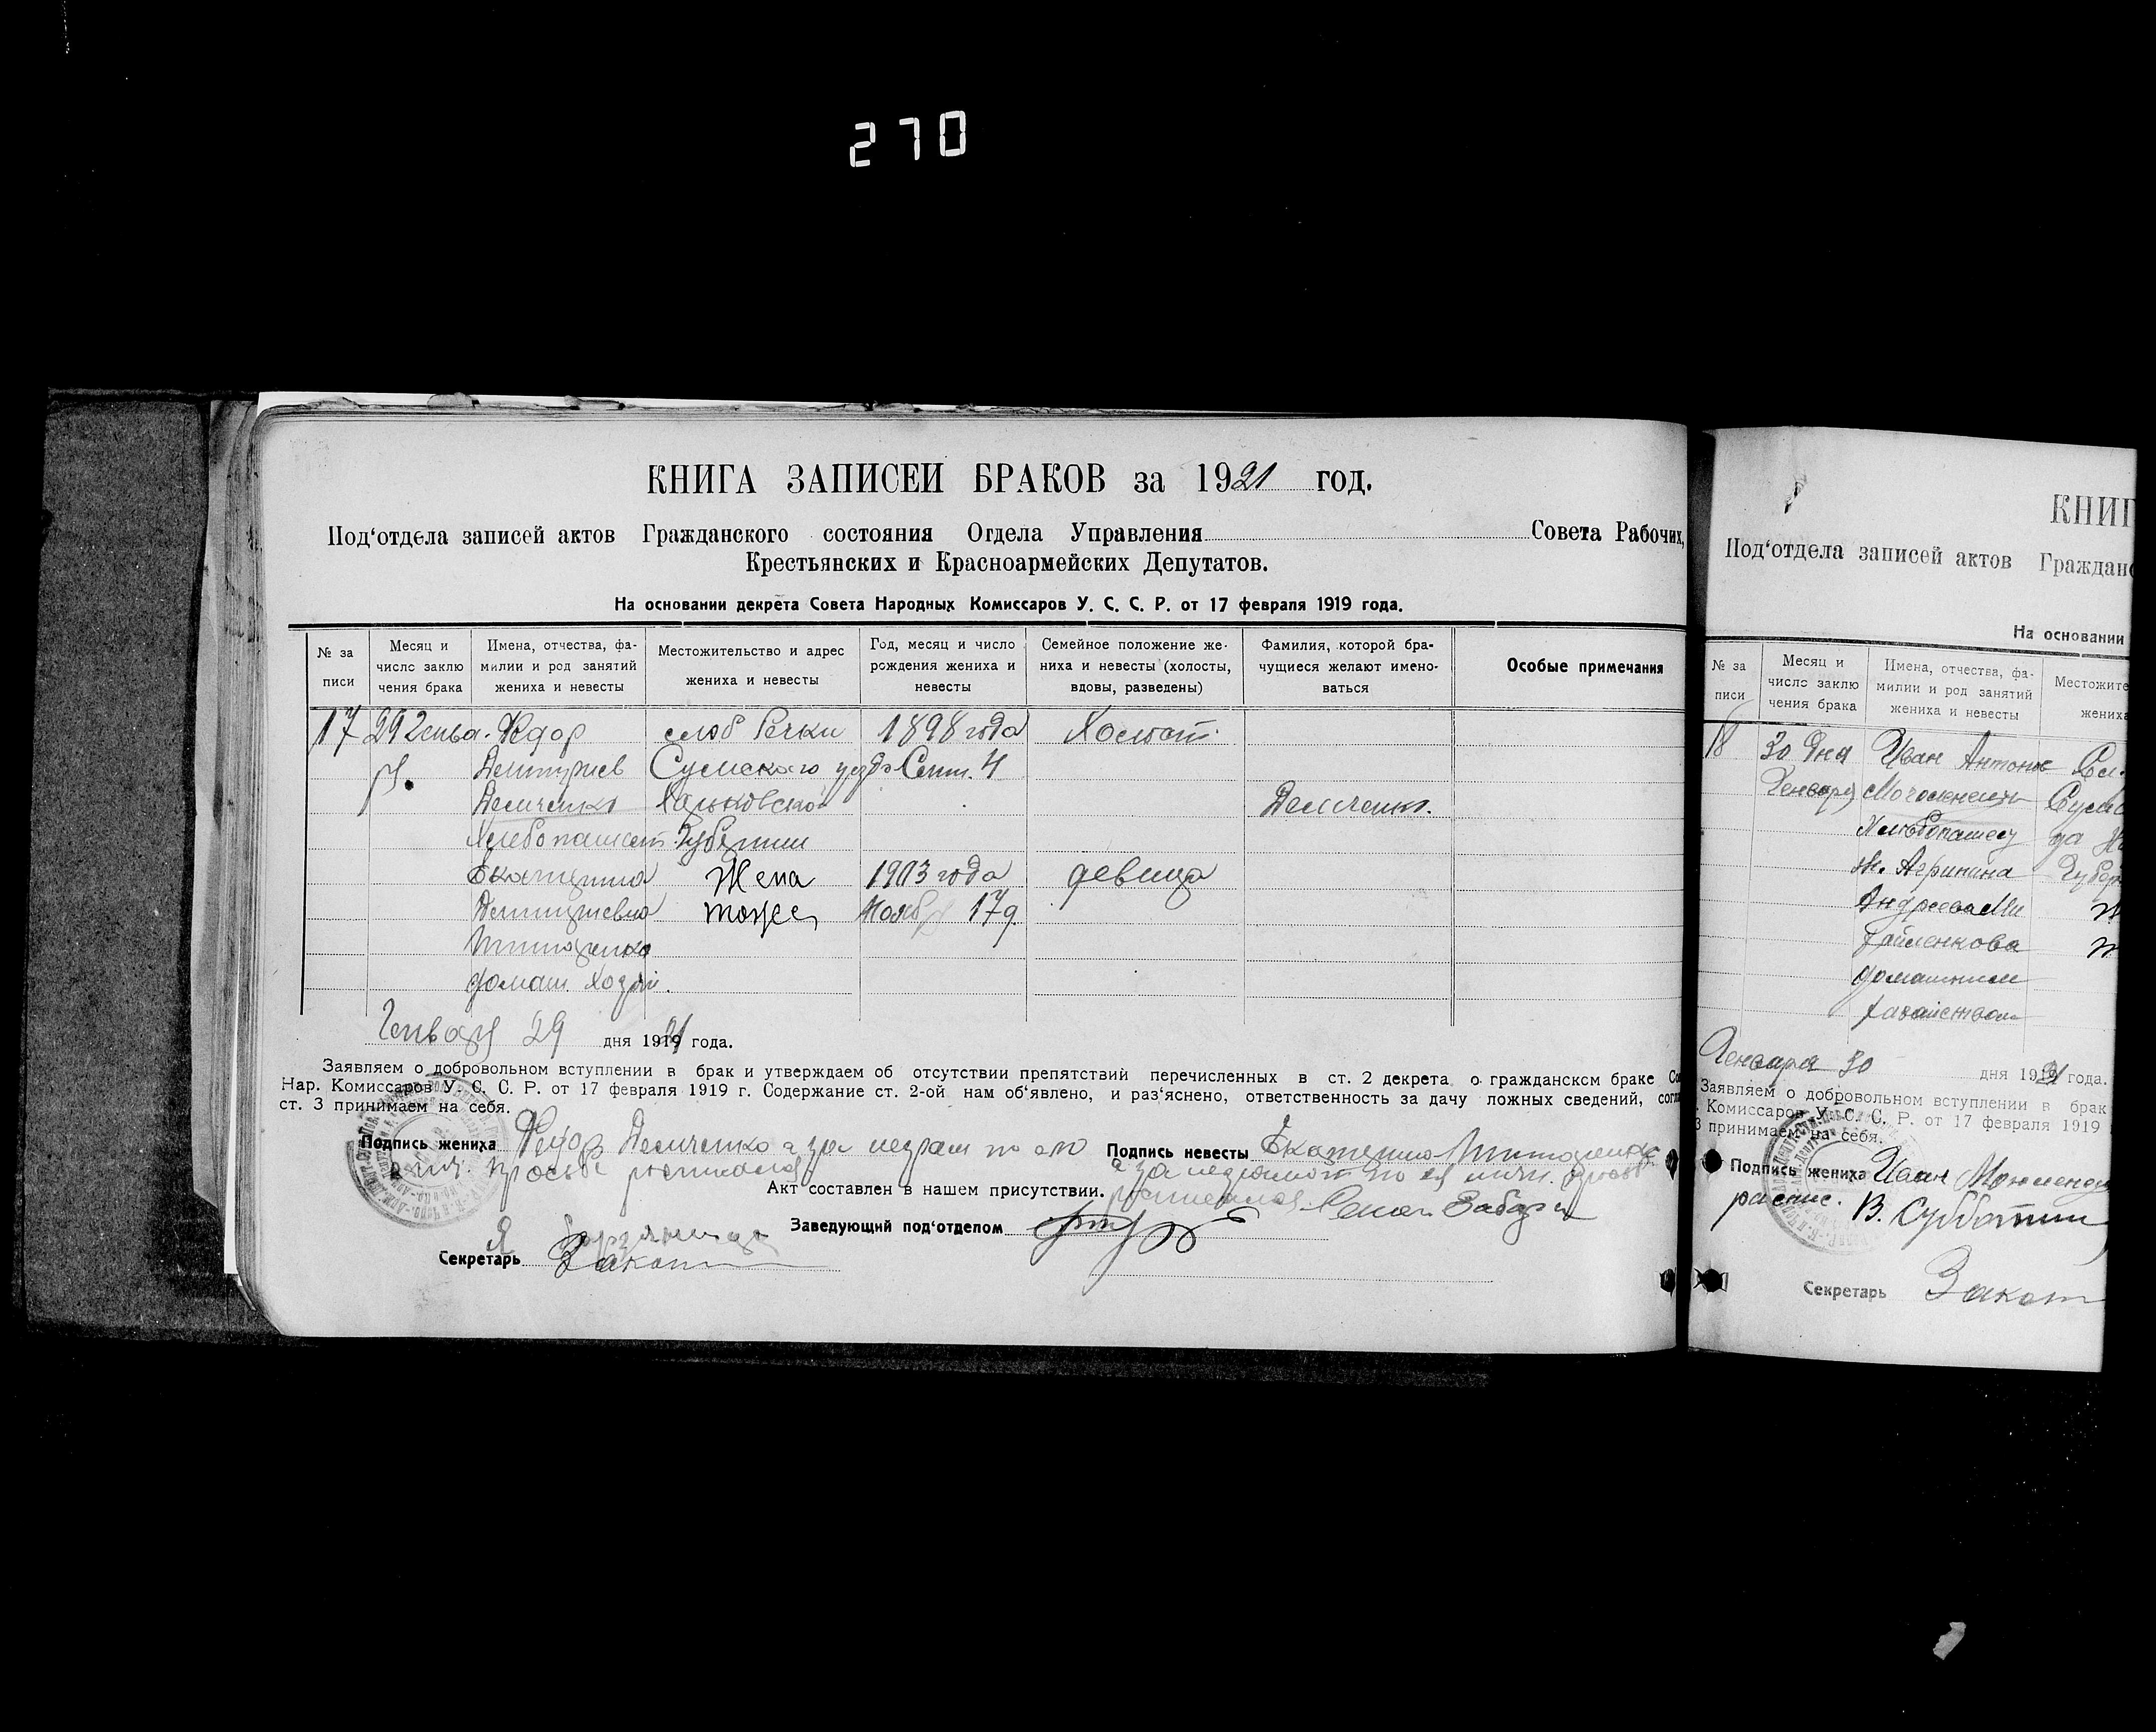 270
КНИГА ЗАПИСЕЙ БРАКОВ за 1921 год.
Под‘отдела записей актов Гражданского состояния Отдела Управления Совета Рабочих,
Крестьянских и Красноармейских Депутатов.
На основании декрета Совета Народных Комиссаров У. С. С. Р. от 17 февраля 1919 года.
№ за
писи
Месяц и
число заклю
чения брака
Имена, отчества, фа-
милии и род занятий
жениха и невесты
Местожительство и адрес
жениха и невесты
Год, месяц и число
рождения жениха и
невесты
Семейное положение же-
ниха и невесты (холосты,
вдовы, разведены)
Фамилия, которой бра-
чущиеся желают имено-
ваться
Особые примечания
17 29 слоб Речки 1898 года Холост
Сумского Сент. 4
Демченко Харьковской Демченко.
Губернии
Екатерина Жена 1903 года девица
тоже Ноябр 17 д.
домаш. Хозяй.
Генваря 29 дня 1921 года.
Заявляем о добровольном вступлении в брак и утверждаем об отсутствии препятствий перечисленных в ст. 2 декрета о гражданском браке Со
Нар. Комиссаров У. С. С. Р. от 17 февраля 1919 г. Содержание ст. 2-ой нам об‘явлено, и раз‘яснено, ответственность за дачу ложных сведений, согл
ст. 3 принимаем на себя.
Подпись жениха Федор Демченко а за неграм по его
просьбе
Подпись невесты Екатерина
Акт составлен в нашем присутствии.
Заведующий под‘отделом
Секретарь
КНИГ
Под‘отдела записей актов Гражданс
На основании
№ за
писи
Месяц и
число заклю
чения брака
Имена, отчества, фа-
милии и род занятий
жениха и невесты
Местожите
жениха
18 30 дня Иван Антонов
Генваря Сумс
ж. Агрипина Губер
Андреева Ми
хайленкова
домашним
Генваря 30 дня 1921 года.
Заявляем о добровольном вступлении в брак
. Комиссаров У. С. С. Р. от 17 февраля 1919
3 принимаем на себя.
Подпись жениха Иван
распис. В. Субботин
Секретарь